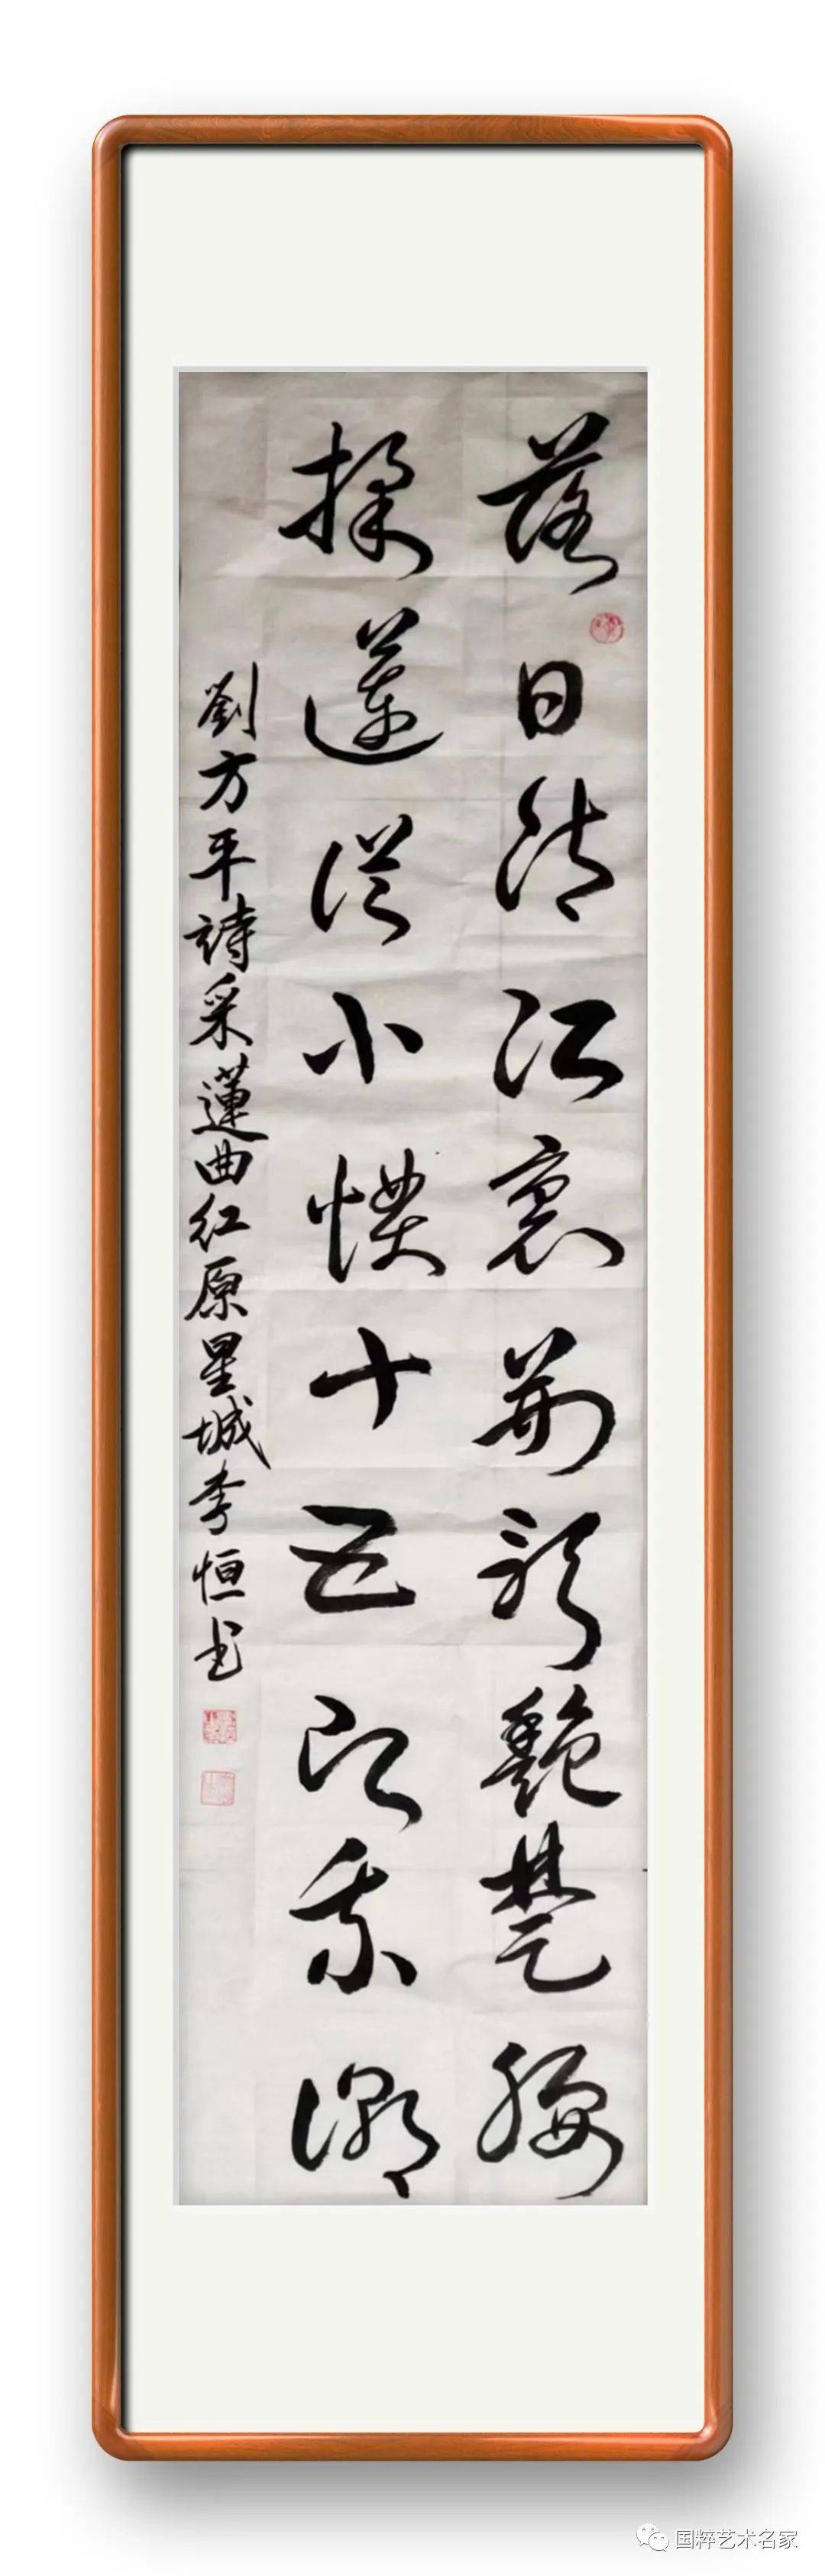 落日清江裏荆歌艷楚腰
採蓮從小慣十五即乘潮
劉方平詩采蓮曲红原星城李恒书
国粹艺术名家